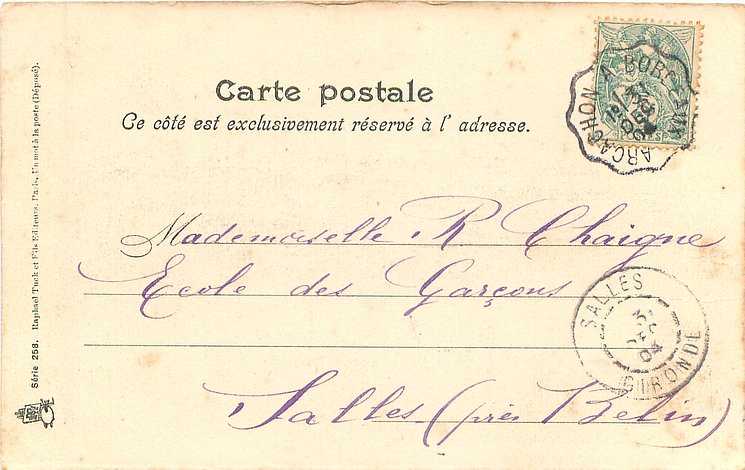 Carte postale
Ce côté est exclusivement réservé à l' adresse.
ARCACHON A BORDEAUX
Mademoiselle R Chaigne
Ecole des Garçons
Salles (près Belin)
SALLES
GIRONDE
04
Série 258. Raphael Tuck et Fils Editeurs. Paris. Un mot à la poste (Déposé).